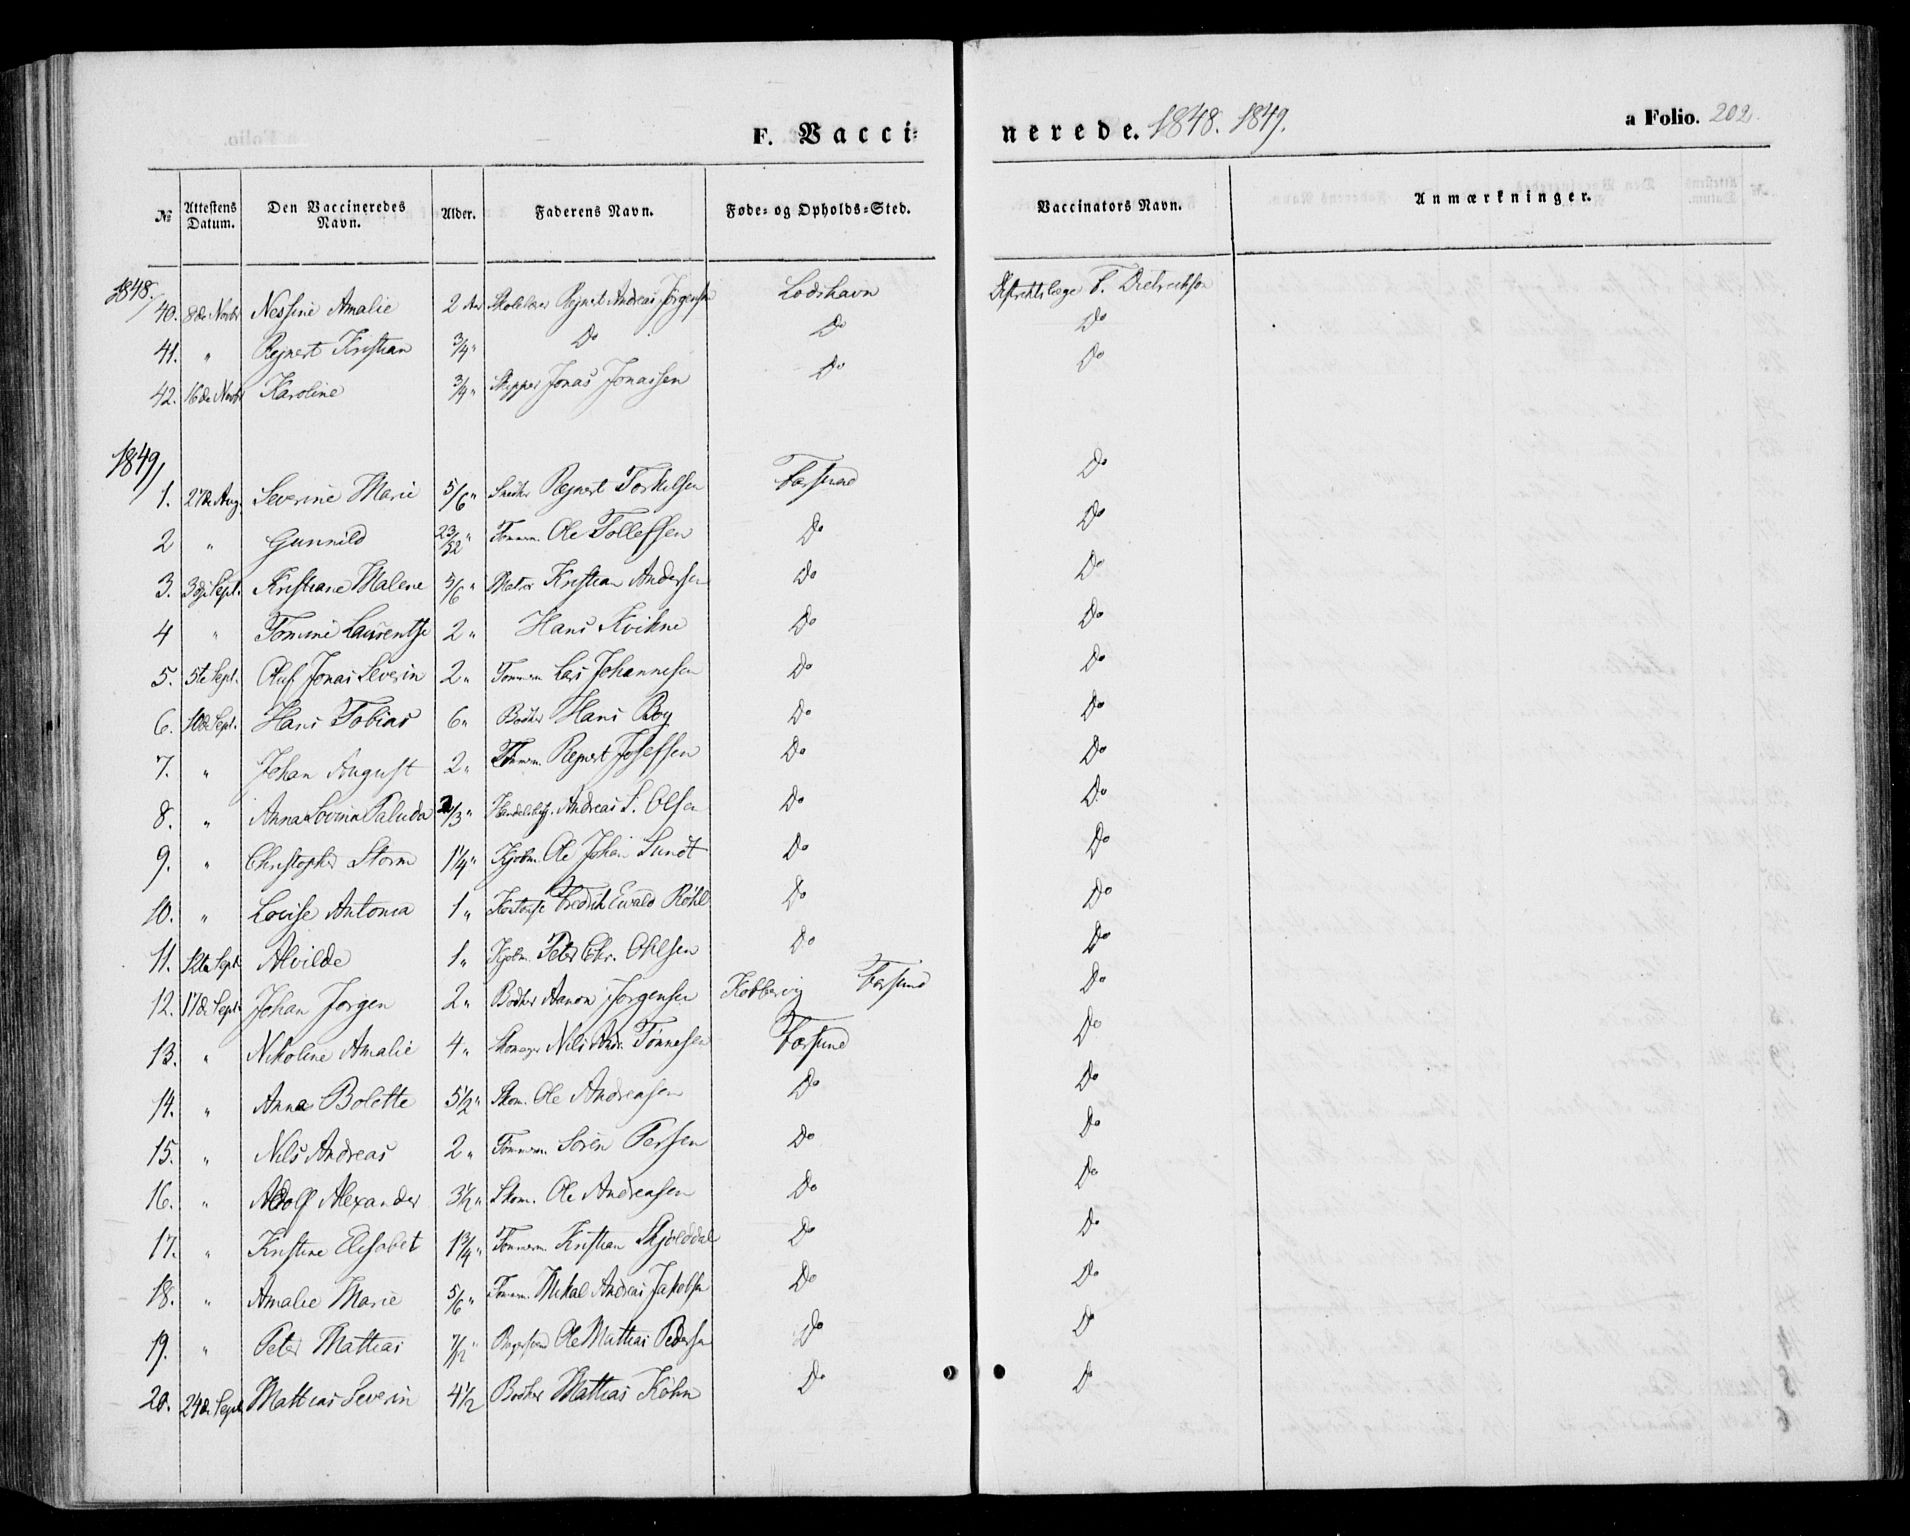 F. Vaccinerede. 1848. 1849. a Folio. 202.
№ Attestens Datum. Den Vaccineredes Navn. Alder. Faderens Navn. Føde- og Opholds-Sted. Vaccinators Navn. Anmærkninger.
1848.
40. 8de Novbr Nessine Amalie 2 Aar Rejnert Andreas Jørgensen Lodshavn Distriktslæge F. Dietrichson
41. " Rejnert Kristian 3/4 " Do Do Do
42. 16de Novbr Karoline 3/4 " Skipper Jonas Jonassen Do Do
1849/
1. 27de Aug. Severine Marie 5/6 " Snedker Rejnert Torkelsen Farsund Do
2 " Gunnild 23/52 " Tømmerm. Ole Tollefsen Do Do
3. 3die Sept. Kristiane Malene 5/6 " Matros Kristian Andersen Do Do
4 " Tomine Laurentse 2 " Hans Kvikne Do Do
5. 5te Sept. Oluf Jonas Severin 2 " Tømmerm Lars Johannesen Do Do
6. 10de Sept. Hans Tobias 6 " Bødker Hans Boy Do Do
7. " Johan August 2 " Tømmerm. Rejnert Josefsen Do Do
8. " Anna Lovina Paluda 2/3 " Andreas S. Olsen Do Do
9. " Christopher Storm 1 1/4 " Kjøbm. Ole Johan Sundt Do Do
10. " Lovise Antonia 1 " Fredrik Ewald Röhl Do Do
11. 12te Sept Alvilde 1 " Kjøbm. Peter Chr. Ohlsen Do Do
12. 17de Sept. Johan Jørgen 2 " Bødker Aanon Jørgensen Kobbervig Farsund Do
13. " Nikoline Amalie 4 " Nils Andr. Tønnesen Farsund Do
14. " Anna Bolette 5 1/2 " Skom. Ole Andreasen Do Do
15. " Nils Andreas 2 " Tømmerm. Søren Persen Do Do
16. " Adolf Alexander 3 1/2 " Skom. Ole Andreasen Do Do
17. " Kristine Elisabet 1 3/4 " Tømmerm. Kristian Skjølddal Do Do
18. " Amalie Marie 5/6 " Tømmerm. Mikal Andreas Jakobsen Do Do
19. " Peter Mathias 7/12 " Bagersvend Ole Mathias Pedersen Do Do
20. 24de Sept Mathias Severin 4 1/2 Bødker Mathias Köhn Do Do